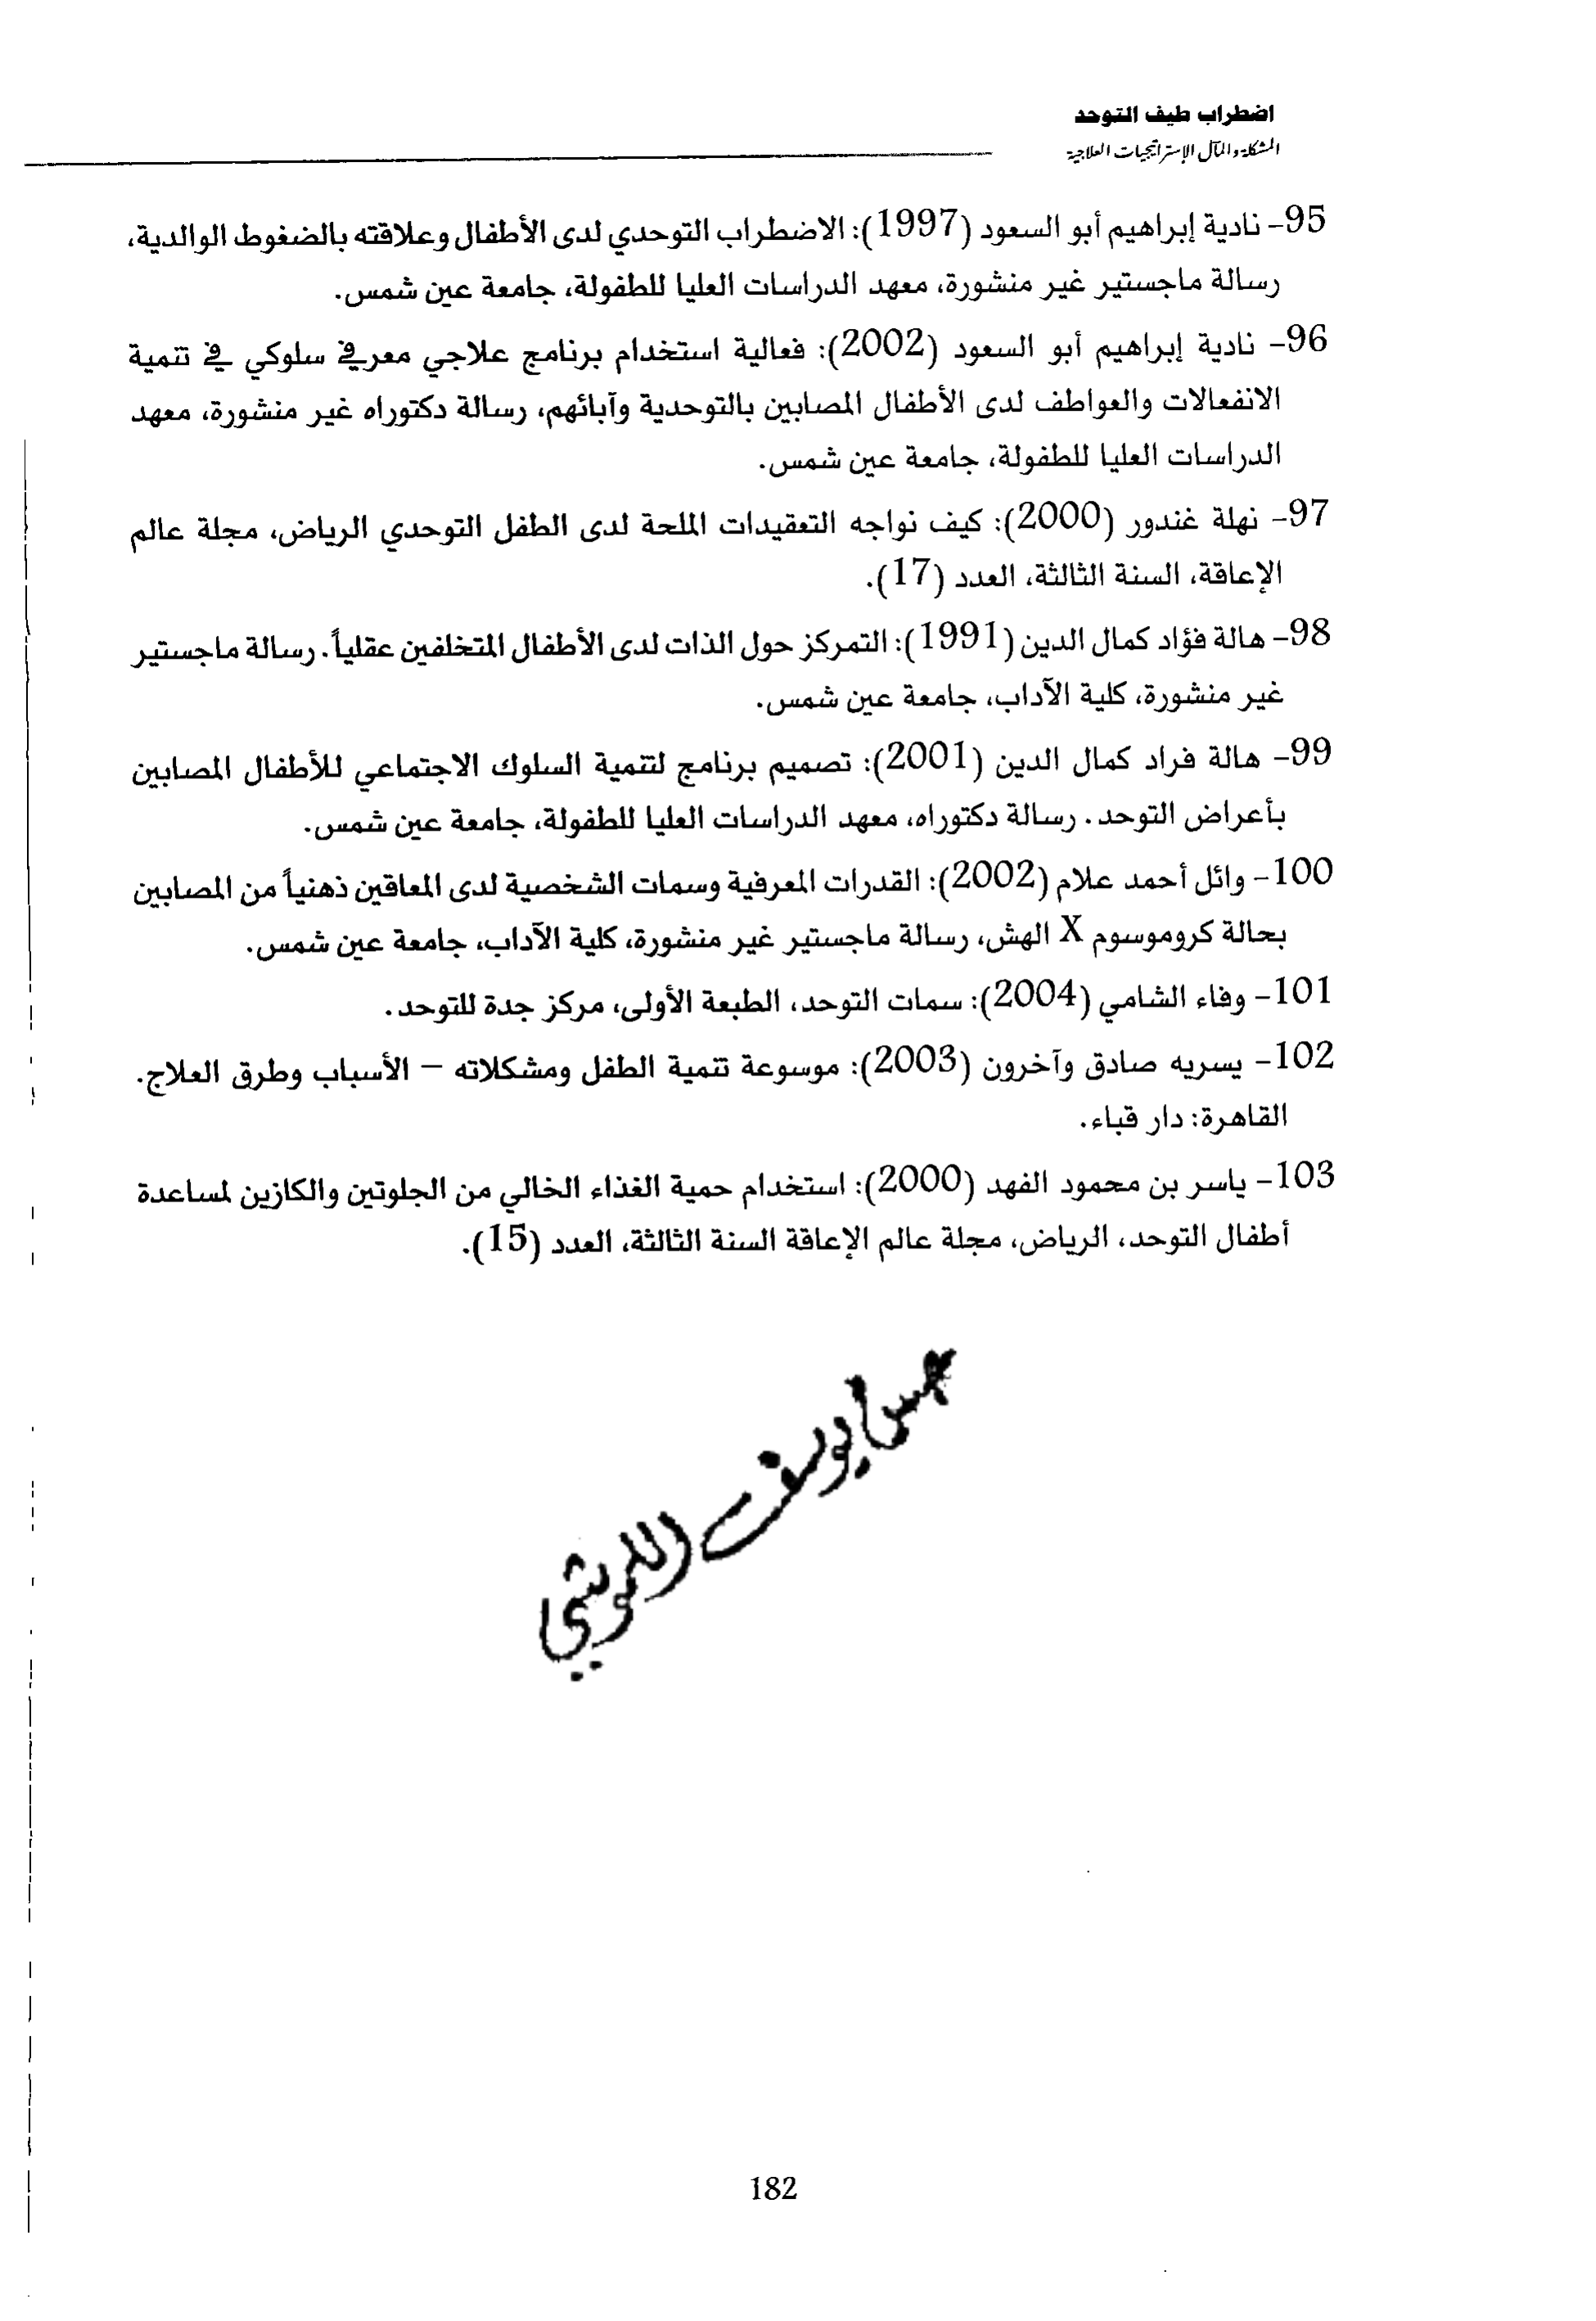 اضطراب طيف التوحد
المشكلة والمآل الإستراتيجيات العلاجية
95- نادية إبراهيم أبو السعود (1997): الاضطراب التوحدي لدى الأطفال وعلاقته بالضغوط الوالدية،
رسالة ماجستير غير منشورة، معهد الدراسات العليا للطفولة، جامعة عين شمس.
96- نادية إبراهيم أبو السعود (2002): فعالية استخدام برنامج علاجي معرفي سلوكي في تنمية
الانفعالات والعواطف لدى الأطفال المصابين بالتوحدية وآبائهم، رسالة دكتوراه غير منشورة، معهد
الدراسات العليا للطفولة، جامعة عين شمس.
97- نهلة غندور (2000): كيف نواجه التعقيدات الملحة لدى الطفل التوحدي الرياض، مجلة عالم
الإعاقة، السنة الثالثة، العدد (17).
98- هالة فؤاد كمال الدين (1991): التمركز حول الذات لدى الأطفال المتخلفين عقلياً. رسالة ماجستير
غير منشورة، كلية الآداب، جامعة عين شمس.
99- هالة فراد كمال الدين (2001): تصميم برنامج لتنمية السلوك الاجتماعي للأطفال المصابين
بأعراض التوحد. رسالة دكتوراه، معهد الدراسات العليا للطفولة، جامعة عين شمس.
100- وائل أحمد علام (2002): القدرات المعرفية وسمات الشخصية لدى المعاقين ذهنياً من المصابين
بحالة كروموسوم X الهش، رسالة ماجستير غير منشورة، كلية الآداب، جامعة عين شمس.
101- وفاء الشامي (2004): سمات التوحد، الطبعة الأولى، مركز جدة للتوحد.
102- يسريه صادق وآخرون (2003): موسوعة تنمية الطفل ومشكلاته – الأسباب وطرق العلاج.
القاهرة: دار قباء.
103- ياسر بن محمود الفهد (2000): استخدام حمية الغذاء الخالي من الجلوتين والكازين لمساعدة
أطفال التوحد، الرياض، مجلة عالم الإعاقة السنة الثالثة، العدد (15).
يوسف
182